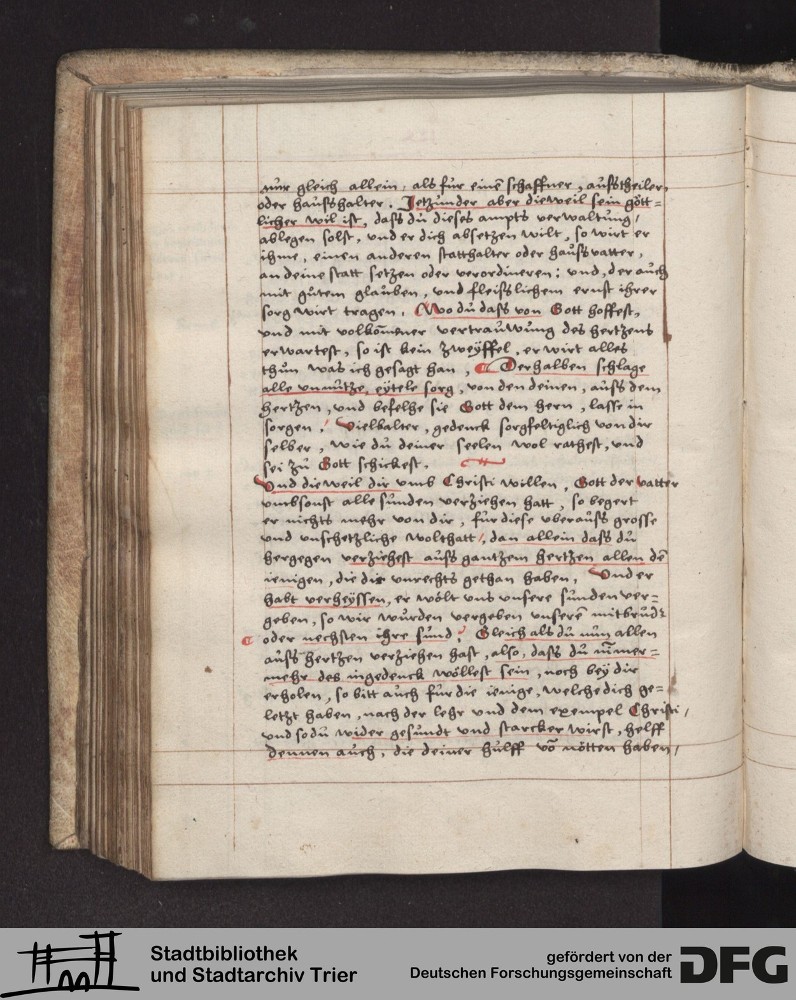 nur gleich allein, als für einē schaffner, aufstheiler,
oder haufshalter. Jetzunder aber dieweil sein gött=
licher wil ist, dafs du dieses ampts verwaltung,
ablegen solst, und er dich absetzen wilt, so wirt er
ihme, einen anderen statthalter oder haufsvatter,
an deine statt setzen oder verordineren: und, der auch
mit gutem glauben, und fleifslichem ernst ihrer
sorg wirt tragen. Wo du dafs von Gott hoffest,
und mit volkōmener vertrauwung des hertzens
erwartest, so ist kein zweyffel, er wirt alles
thun was ich gesagt han, Derhalben schlage
alle unnutze, eytele sorg, von den deinen, aufs dem
hertzen, und befelhe sie Gott dem hern, lasse in
sorgen. Vielkalter, gedenck sorgfeltiglich von dir
selber, wie du deiner seelen wol rathest, und
sei zu Gott schickest.
Und dieweil dir umb Christi willen, Gott der vatter
umbsonst alle sunden verziehen hatt, so begert
er nichts mehr von dir, für diese uberaufs grosse
und unschetzliche wolthatt, dan allein dafs du
hergegen verziehest aufs gantzem hertzen allen dē
ienigen, die dir unrechts gethan haben. Und er
habt verheyssen, er wölt uns unsere sunden ver=
geben, so wir wurden vergeben unserē mitbrud
oder nechsten ihre sund. Gleich als du nun allen
aufs hertzen verziehen hast, also, dafs du nim̄er=
mehr des ingedenck wöllest sein, noch bey dir
erholen, so bitt auch für die ienige, welche dich ge=
letzt haben, nach der lehr und dem exempel Christi,
und so du wider gesundt und starcker wirst, helff
dennen auch, die deiner hülff vō nötten haben,
Stadtbibliothek
und Stadtarchiv Trier
gefördert von der
Deutschen Forschungsgemeinschaft
DFG